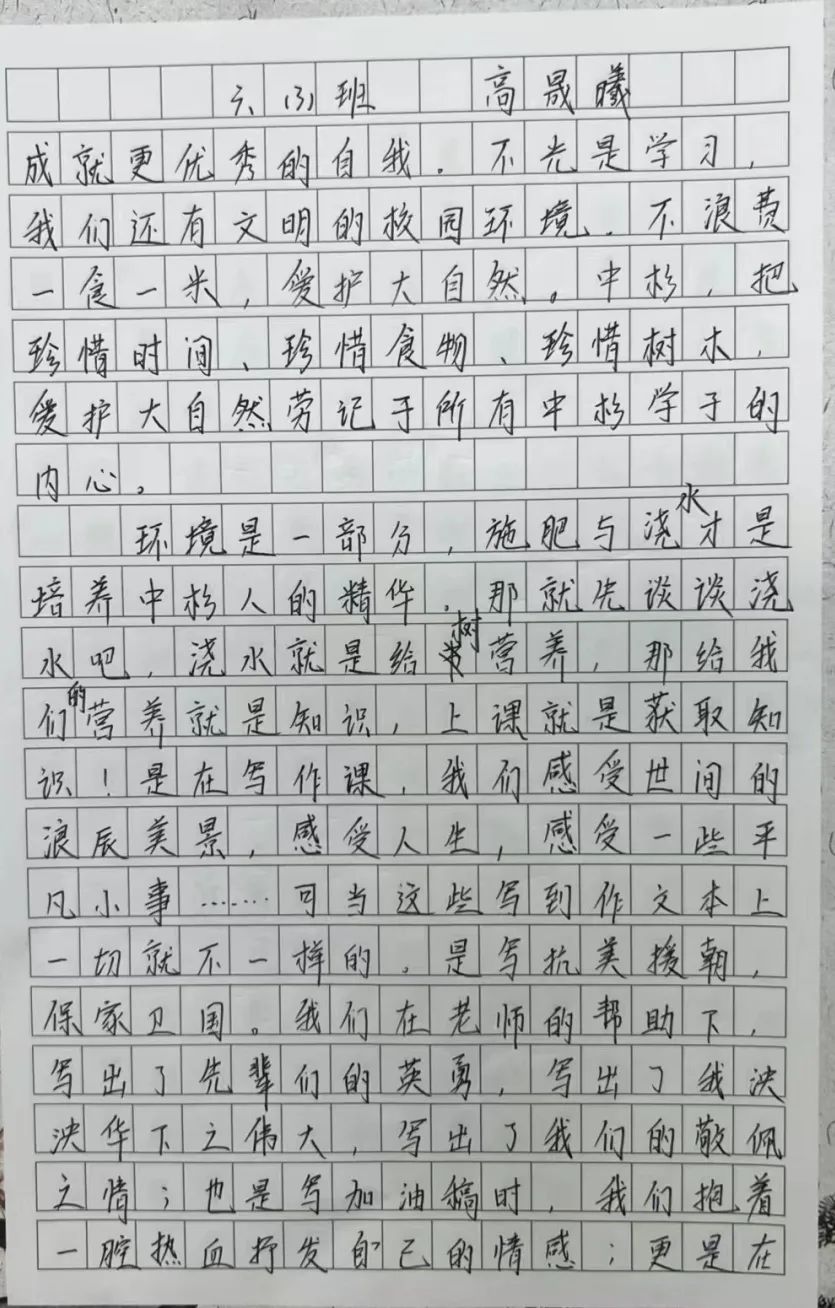 六(3)班 高晟曦
成就更优秀的自我。不光是学习，
我们还有文明的校园环境，不浪费
一食一米，爱护大自然。中杉，把
珍惜时间、珍惜食物、珍惜树木，
爱护大自然劳记于所有中杉学子的
内心。
环境是一部分，施肥与浇水才是
培养中杉人的精华，那就先谈谈浇
水吧，浇水就是给树营养，那给我
们的营养就是知识，上课就是获取知
识！是在写作课，我们感受世间的
浪辰美景，感受人生，感受一些平
凡小事……可当这些写到作文本上
一切就不一样的。是写抗美援朝，
保家卫国。我们在老师的帮助下，
写出了先辈们的英勇，写出了我泱
泱华下之伟大，写出了我们的敬佩
之情；也是写加油稿时，我们抱着
一腔热血抒发自己的情感；更是在